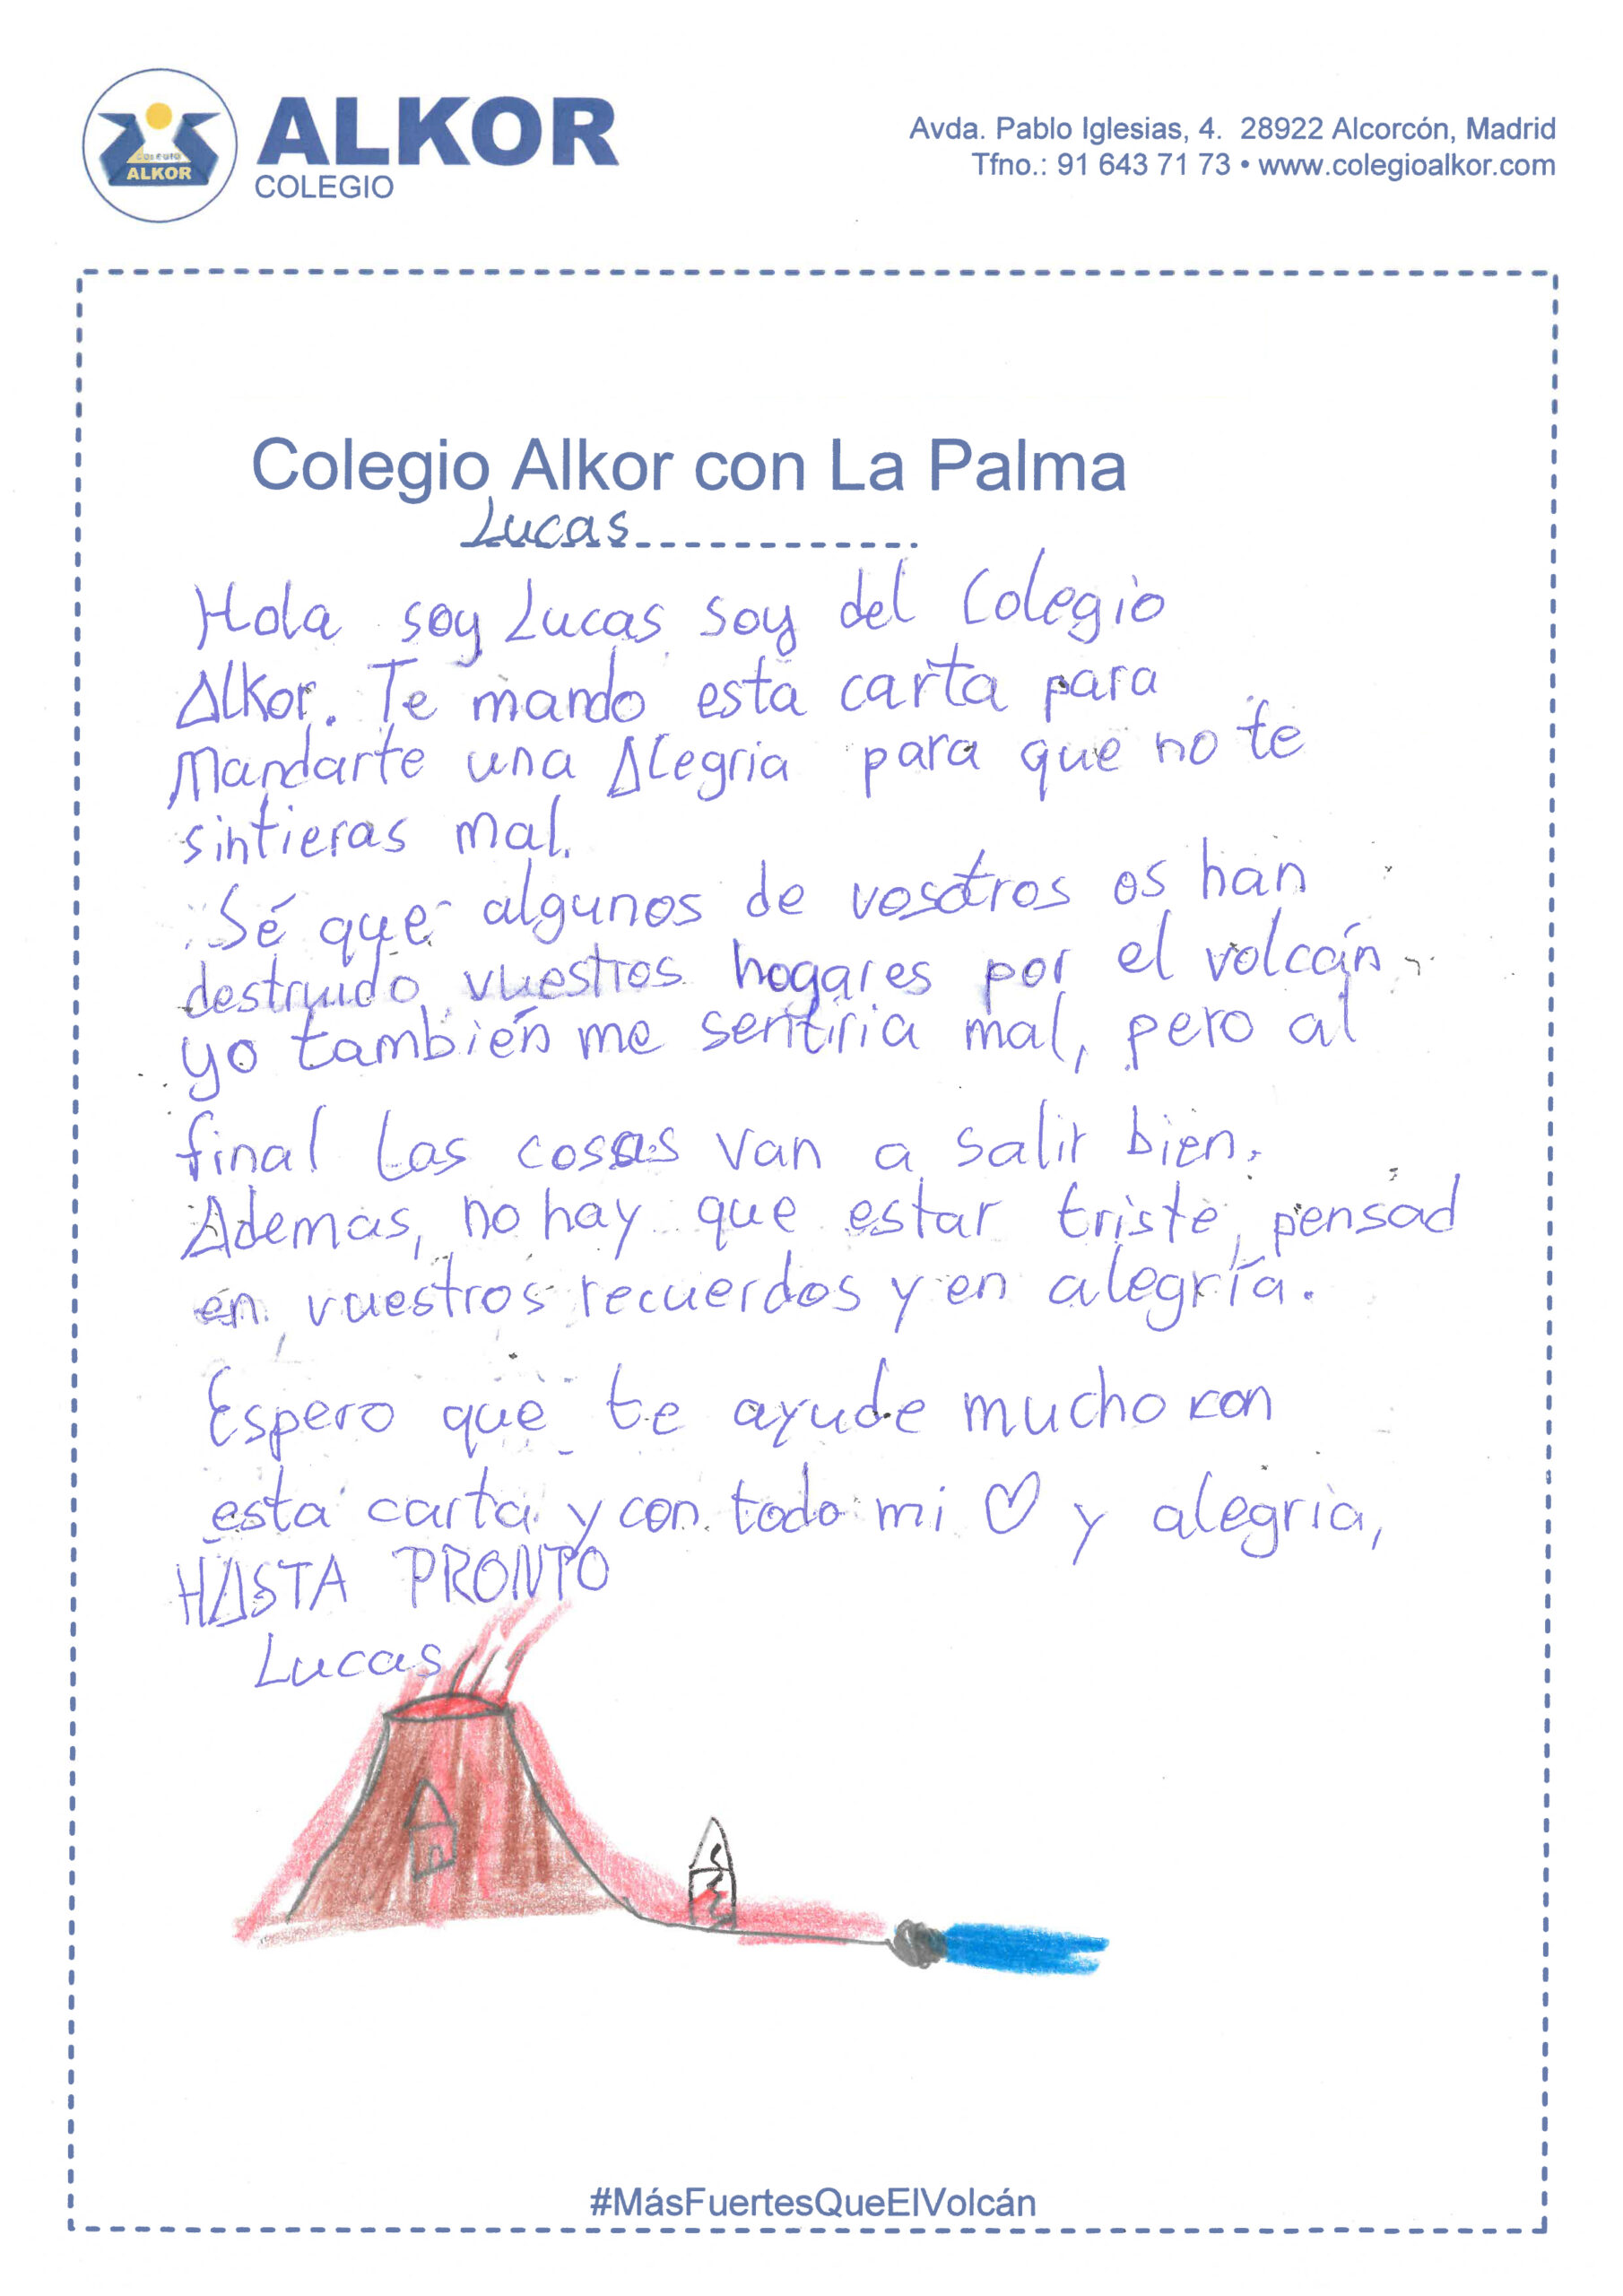 ALKOR
COLEGIO
Colegio
ALKOR
Avda. Pablo Iglesias, 4. 28922 Alcorcón, Madrid
Tfno.: 91 643 71 73 • www.colegioalkor.com
Colegio Alkor con La Palma
Lucas
Hola soy Lucas soy del Colegio
Alkor. Te mando esta carta para
Mandarte una Alegria para que no te
sintieras mal.
Sé que algunos de vosotros os han
destruido vuestros hogares por el volcán
yo también me sentiria mal, pero al
final las cosas van a salir bien.
Ademas, no hay que estar triste, pensad
en vuestros recuerdos y en alegría.
Espero que te ayude mucho con
esta carta y con todo mi ♡ y alegria,
HASTA PRONTO
Lucas
#MásFuertesQueElVolcán